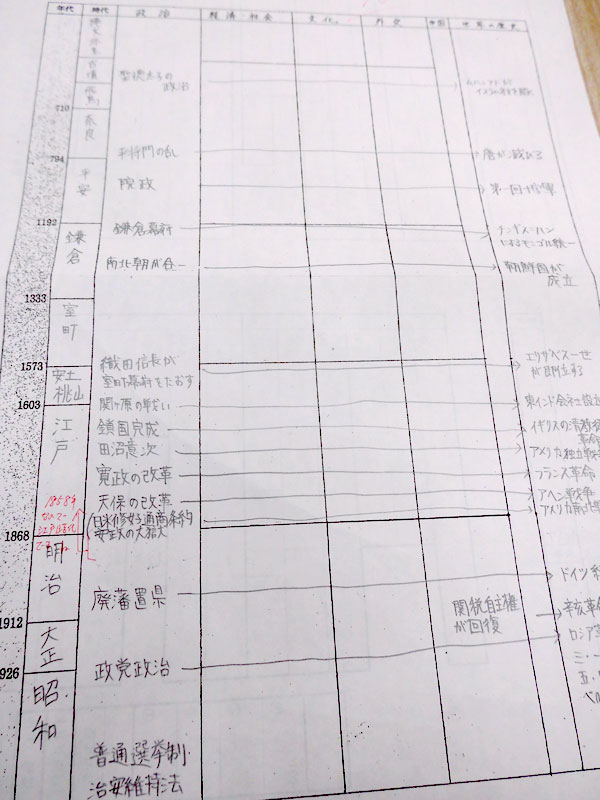 年代 時代 政治 経済・社会 文化 外交 中国 世界の歴史
縄文・弥生
古墳
飛鳥
聖徳太子の
政治
ムハンマドが
イスラム教を開く
710
奈良
平将門の乱
唐が滅びる
794
平安
院政
第一回十字軍
1192
鎌倉
鎌倉幕府
チンギス=ハン
によるモンゴル統一
南北朝が合一
朝鮮国が
成立
1333
室町
1573
織田信長が
室町幕府をたおす
エリザベス一世
が即位する
安土桃山
1603
関ヶ原の戦い
東インド会社設
江戸
鎖国完成
イギリスの清教徒
革命
田沼意次
アメリカ独立戦
寛政の改革
フランス革命
天保の改革
アヘン戦争
日米修好通商条約
安政の大獄
アメリカ南北戦
1858年
なので
江戸時代
ですね
1868
明治
廃藩置県
ドイツ
関税自主権
が回復
辛亥革
1912
大正
ロシア
政党政治
三・一
五・
926
昭和
普通選挙制
治安維持法